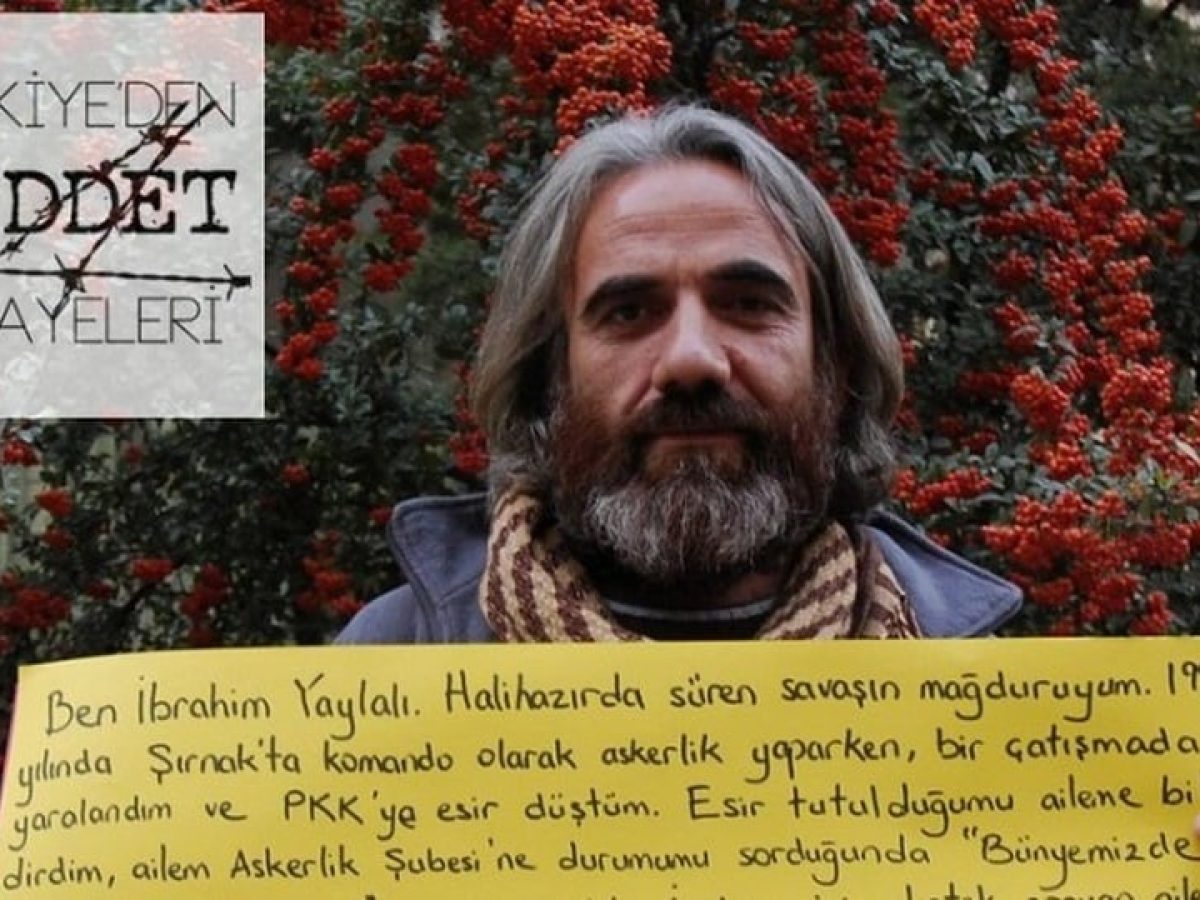 KİYE'DEN
DDET
AYELERİ
Ben İbrahim Yaylalı. Halihazırda süren savaşın mağduruyum. 19
yılında Şırnak'ta komando olarak askerlik yaparken, bir çatışmada
yaralandım ve PKK'ya esir düştüm. Esir tutulduğumu aileme bil
dirdim, ailem Askerlik Şubesi'ne durumumu sorduğunda "Bünyemizde